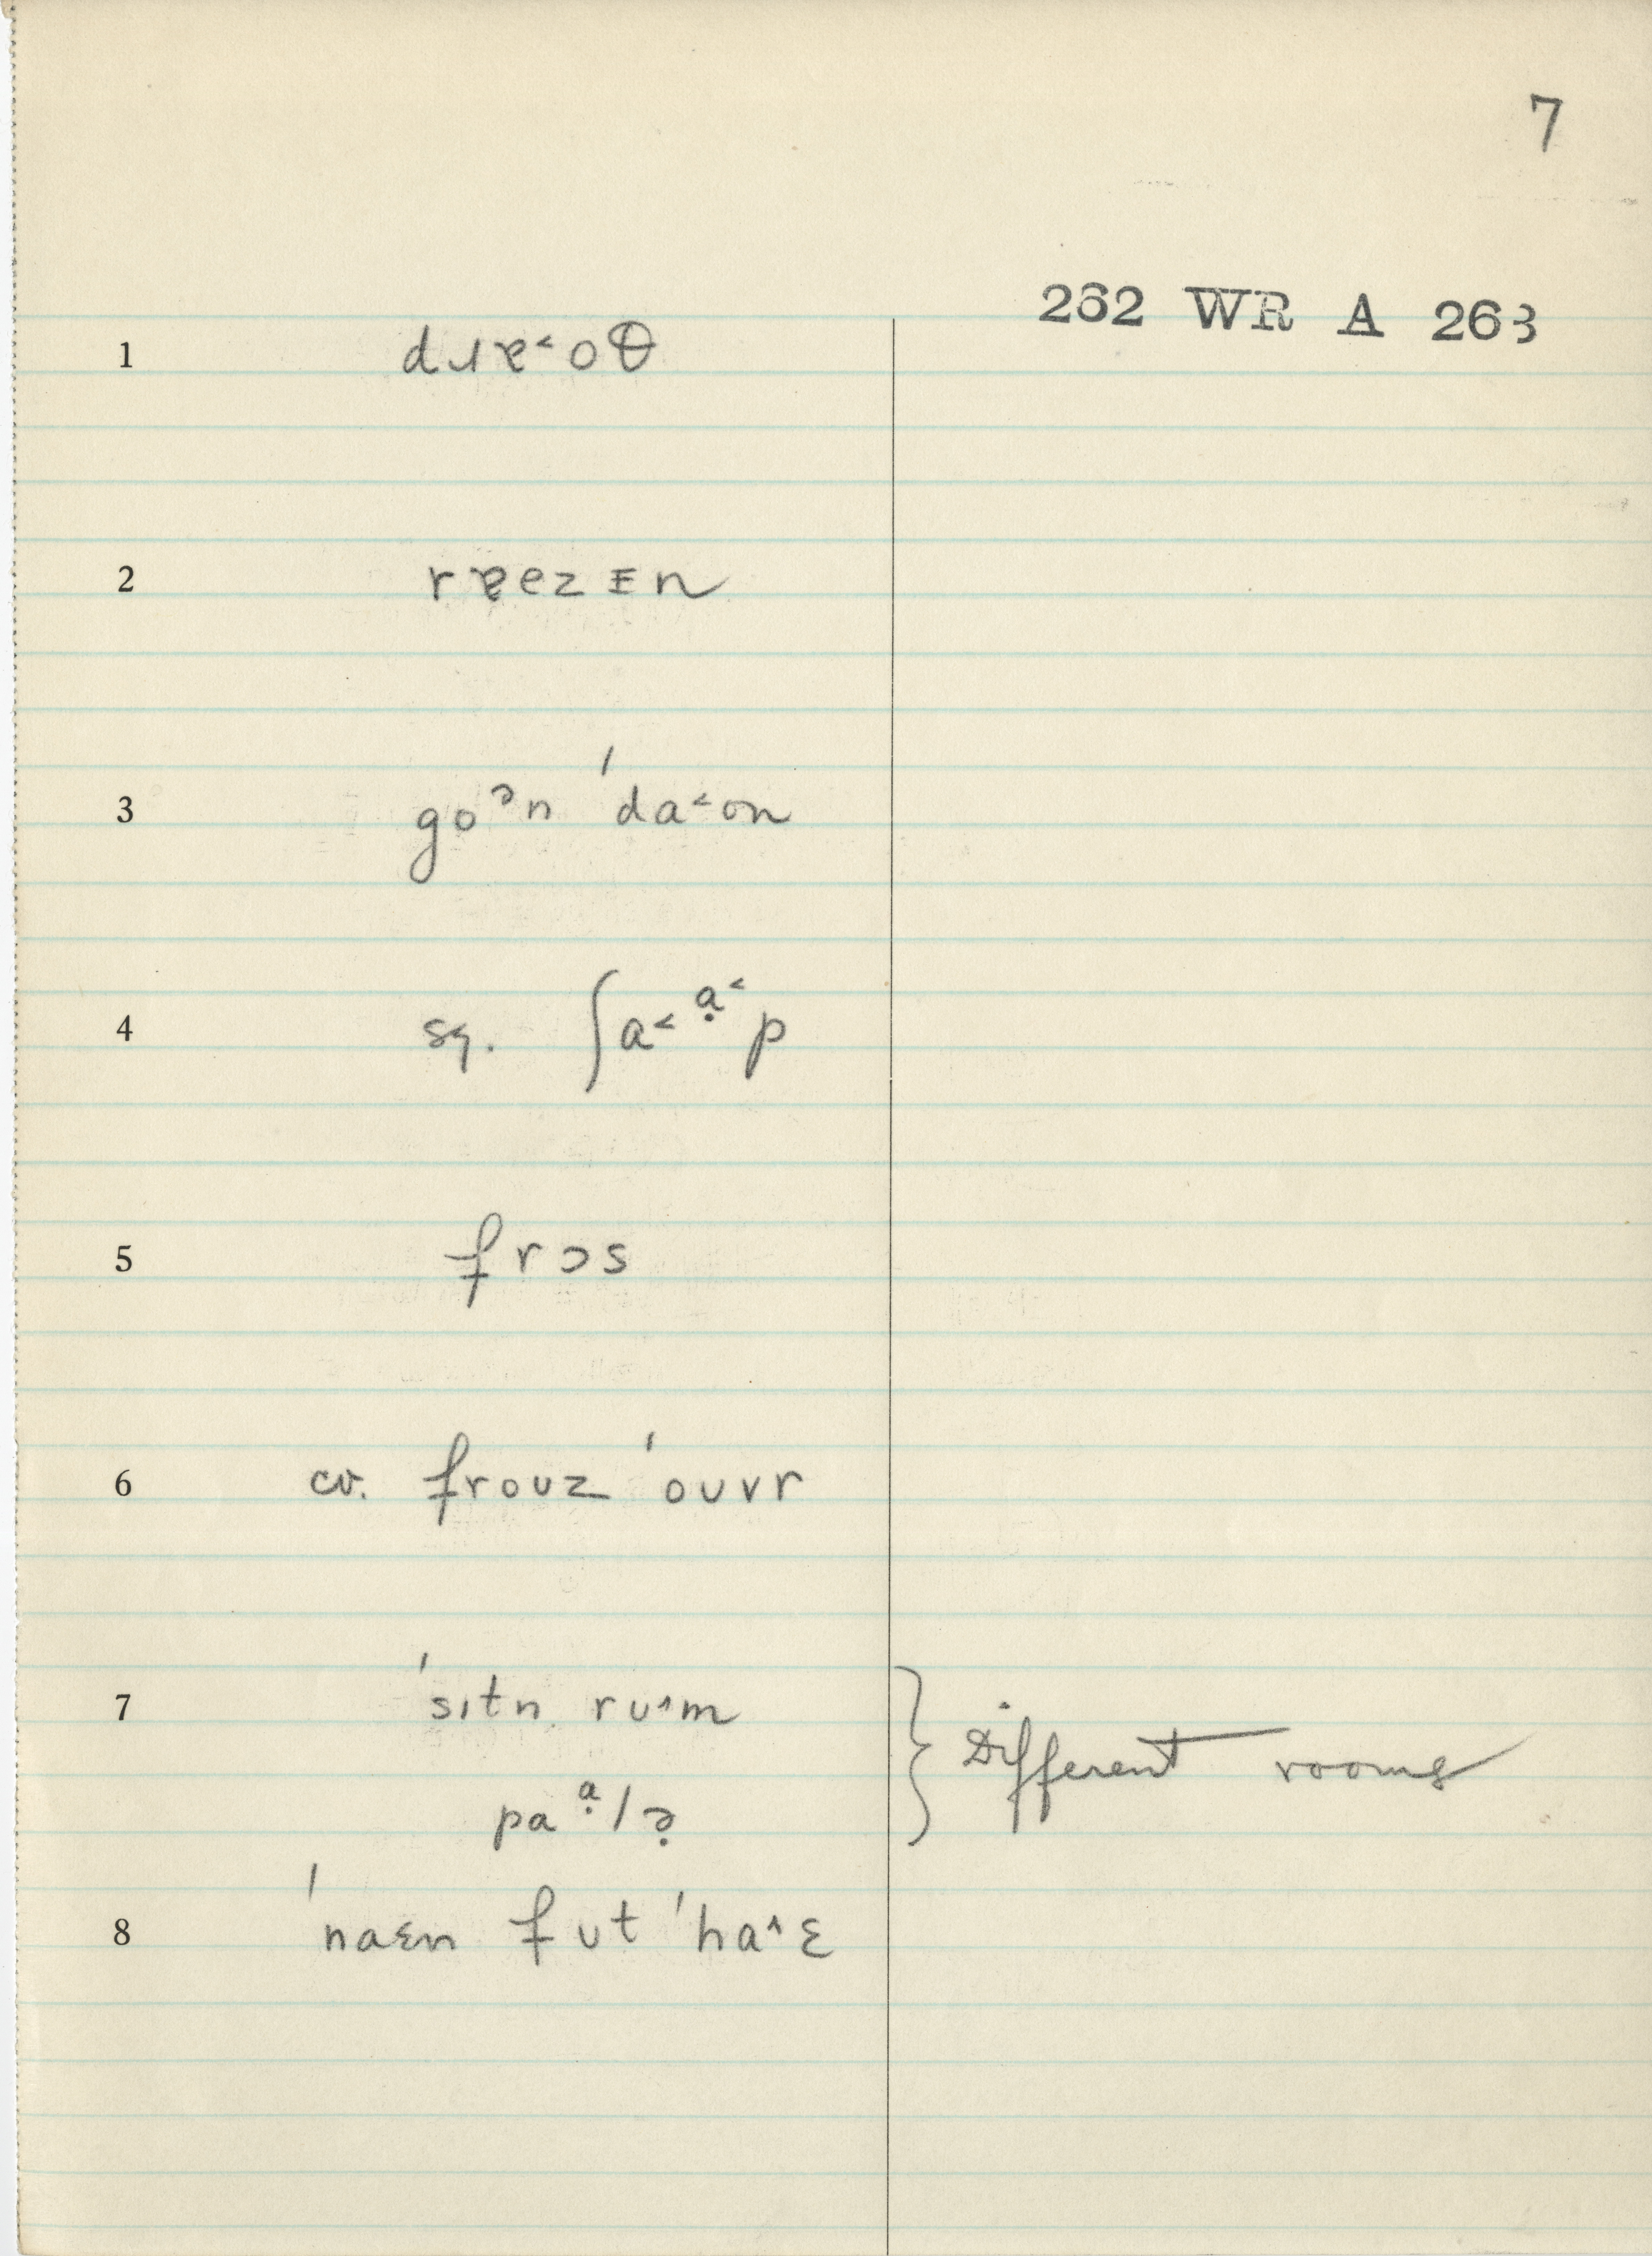 7
262 WR A 263
1 dɹɐ˂oθ
2 rɐezᴇn
3 goᵊn ˈda˂on
4 sq. ʃa˂ᵃ̣˂p
5 frɔs
6 cv. frouz ˈouvr
7 ˈsɪtn ru˄m } Different rooms
paᵃ̣lə̣
8 ˈnaɛn fut ˈha˄ɛ